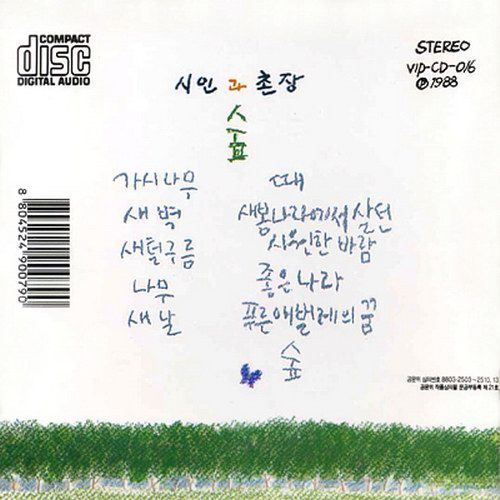 COMPACT
disc
DIGITAL AUDIO
STEREO
VIP-CD-016
Ⓟ1988
시인과 촌장
숲
가시나무
새벽
새털구름
나무
새날
때
새봄나라에서 살던
시원한 바람
좋은나라
푸른애벌레의 꿈
숲
8 804524 900790
공윤위 심의번호 8803-2503~2510, 13
공윤위 작품심의필 문공부등록 제21호